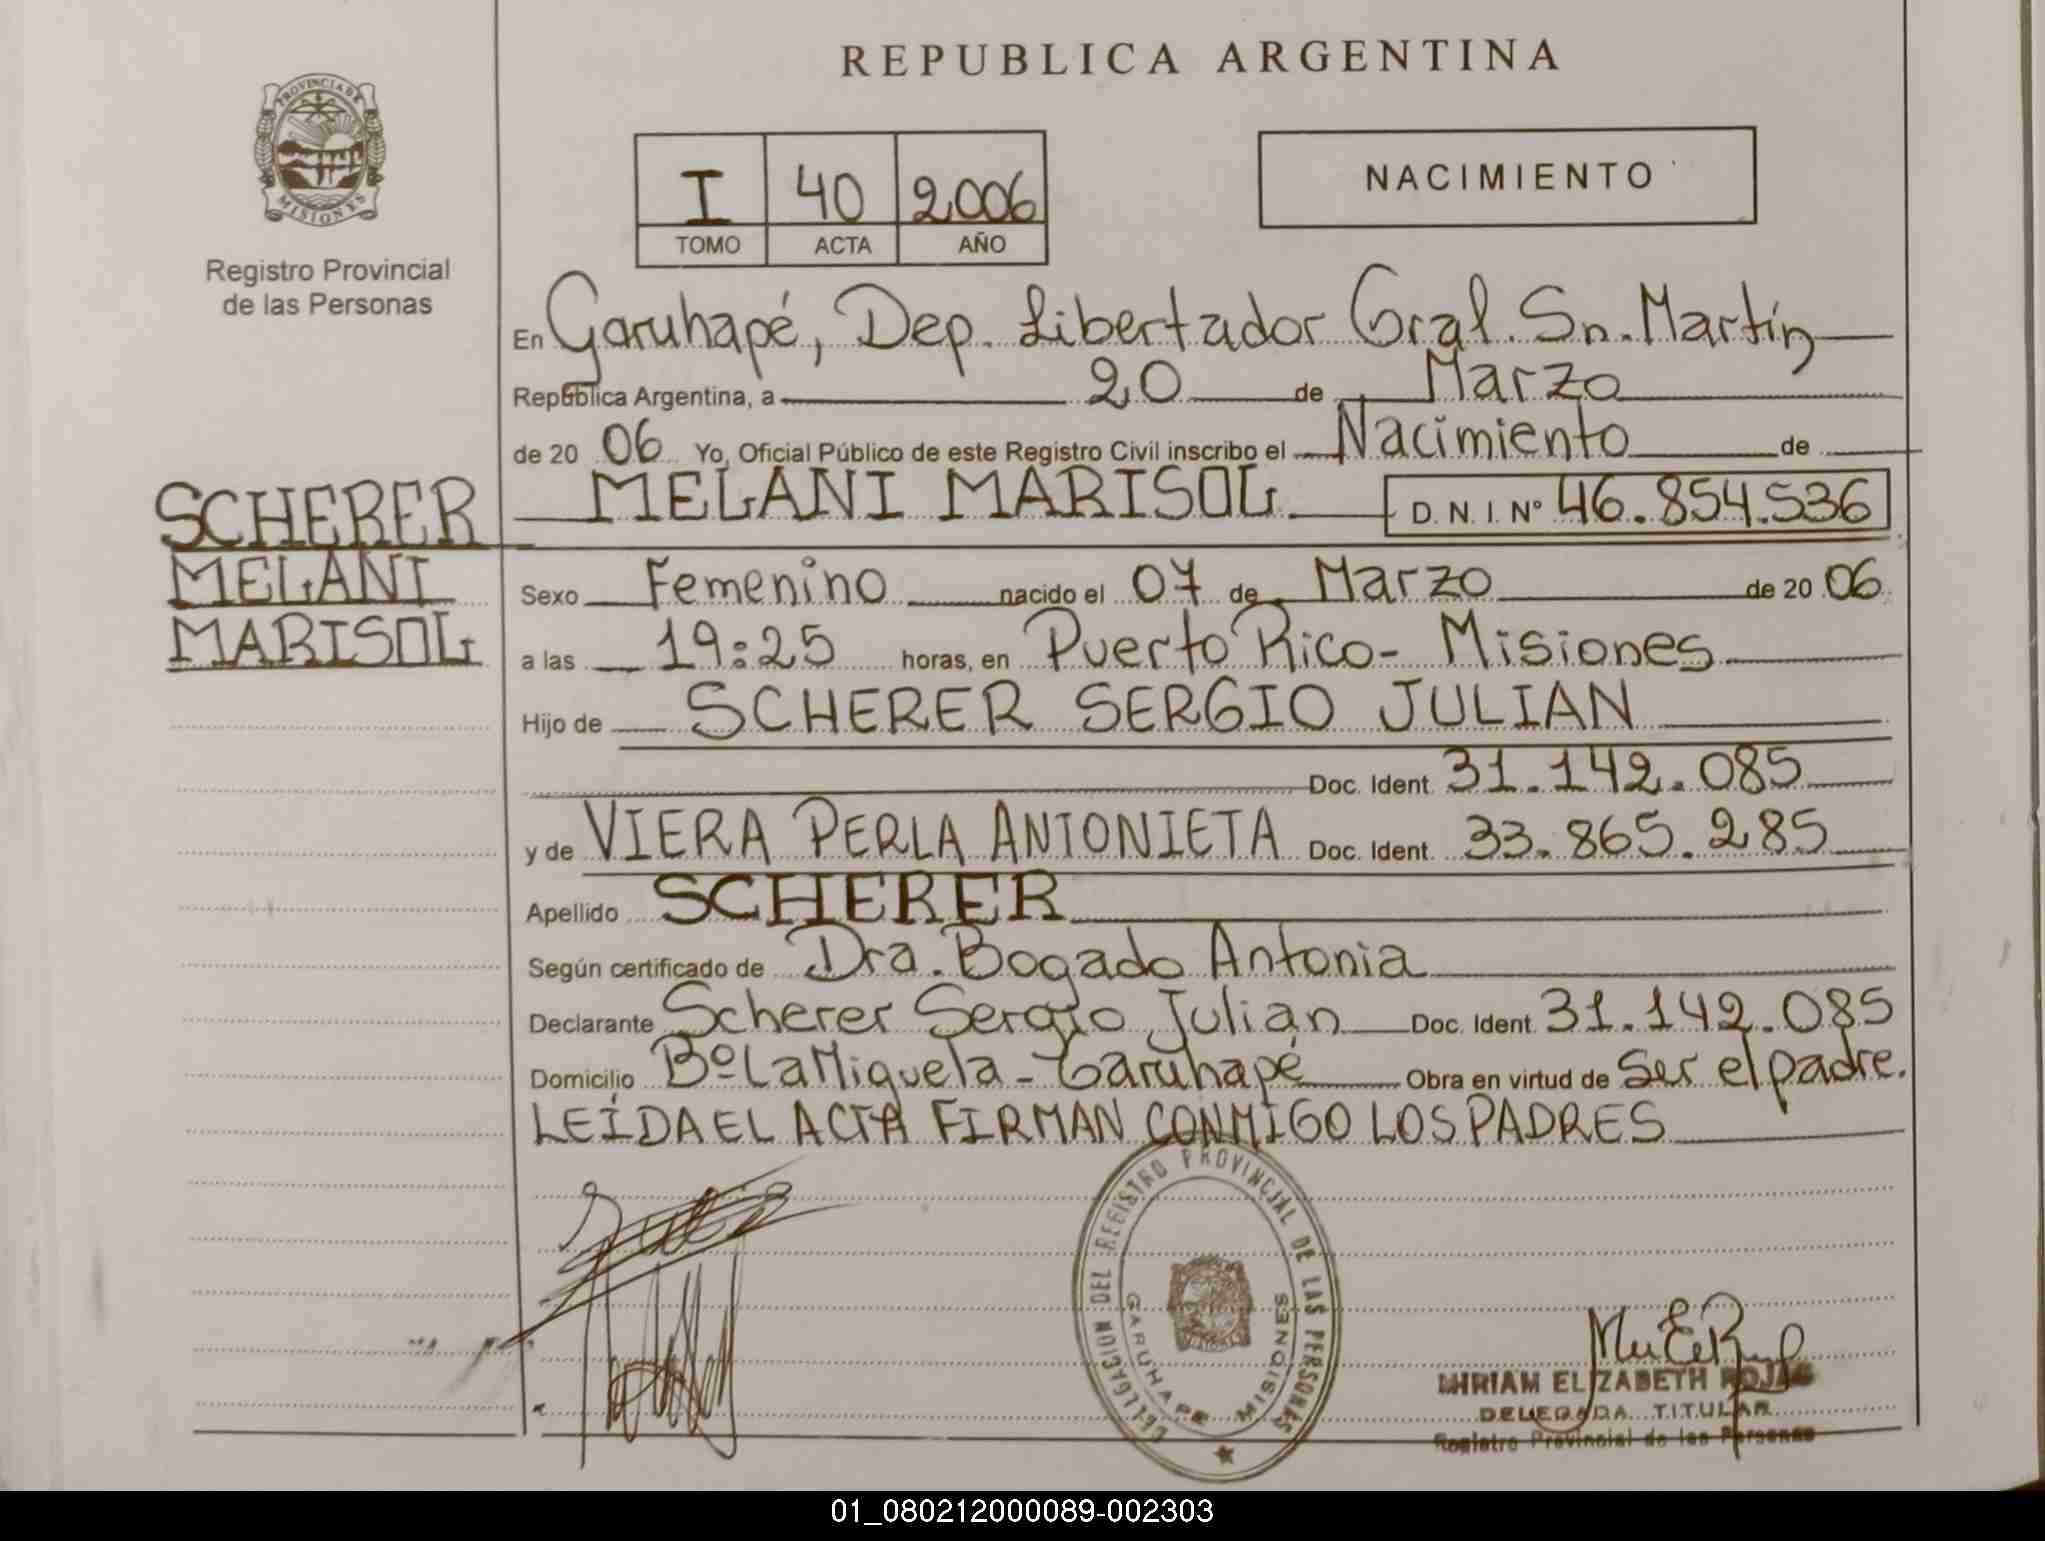 REPUBLICA ARGENTINA
PROVINCIA DE
MISIONES
Registro Provincial
de las Personas
I 40 2006
TOMO ACTA AÑO
NACIMIENTO
En Garuhapé, Dep. Libertador Gral. Sn. Martín
República Argentina, a 20 de Marzo
de 20 06 Yo, Oficial Público de este Registro Civil inscribo el Nacimiento de
MELANI MARISOL D. N. I. Nº 46.854.536
SCHERER
MELANI
MARISOL
Sexo Femenino nacido el 07 de Marzo de 20 06
a las 19:25 horas, en Puerto Rico - Misiones
Hijo de SCHERER SERGIO JULIAN
Doc. Ident. 31.142.085
y de VIERA PERLA ANTONIETA Doc. Ident. 33.865.285
Apellido SCHERER
Según certificado de Dra. Bogado Antonia
Declarante Scherer Sergio Julián Doc. Ident. 31.142.085
Domicilio Bº La Miguela - Garuhapé Obra en virtud de Ser el padre.
LEÍDA EL ACTA FIRMAN CONMIGO LOS PADRES
DELEGACION DEL REGISTRO PROVINCIAL DE LAS PERSONAS
GARUHAPE MISIONES
MIRIAM ELIZABETH ROJAS
DELEGADA TITULAR
Registro Provincial de las Personas
01_080212000089-002303